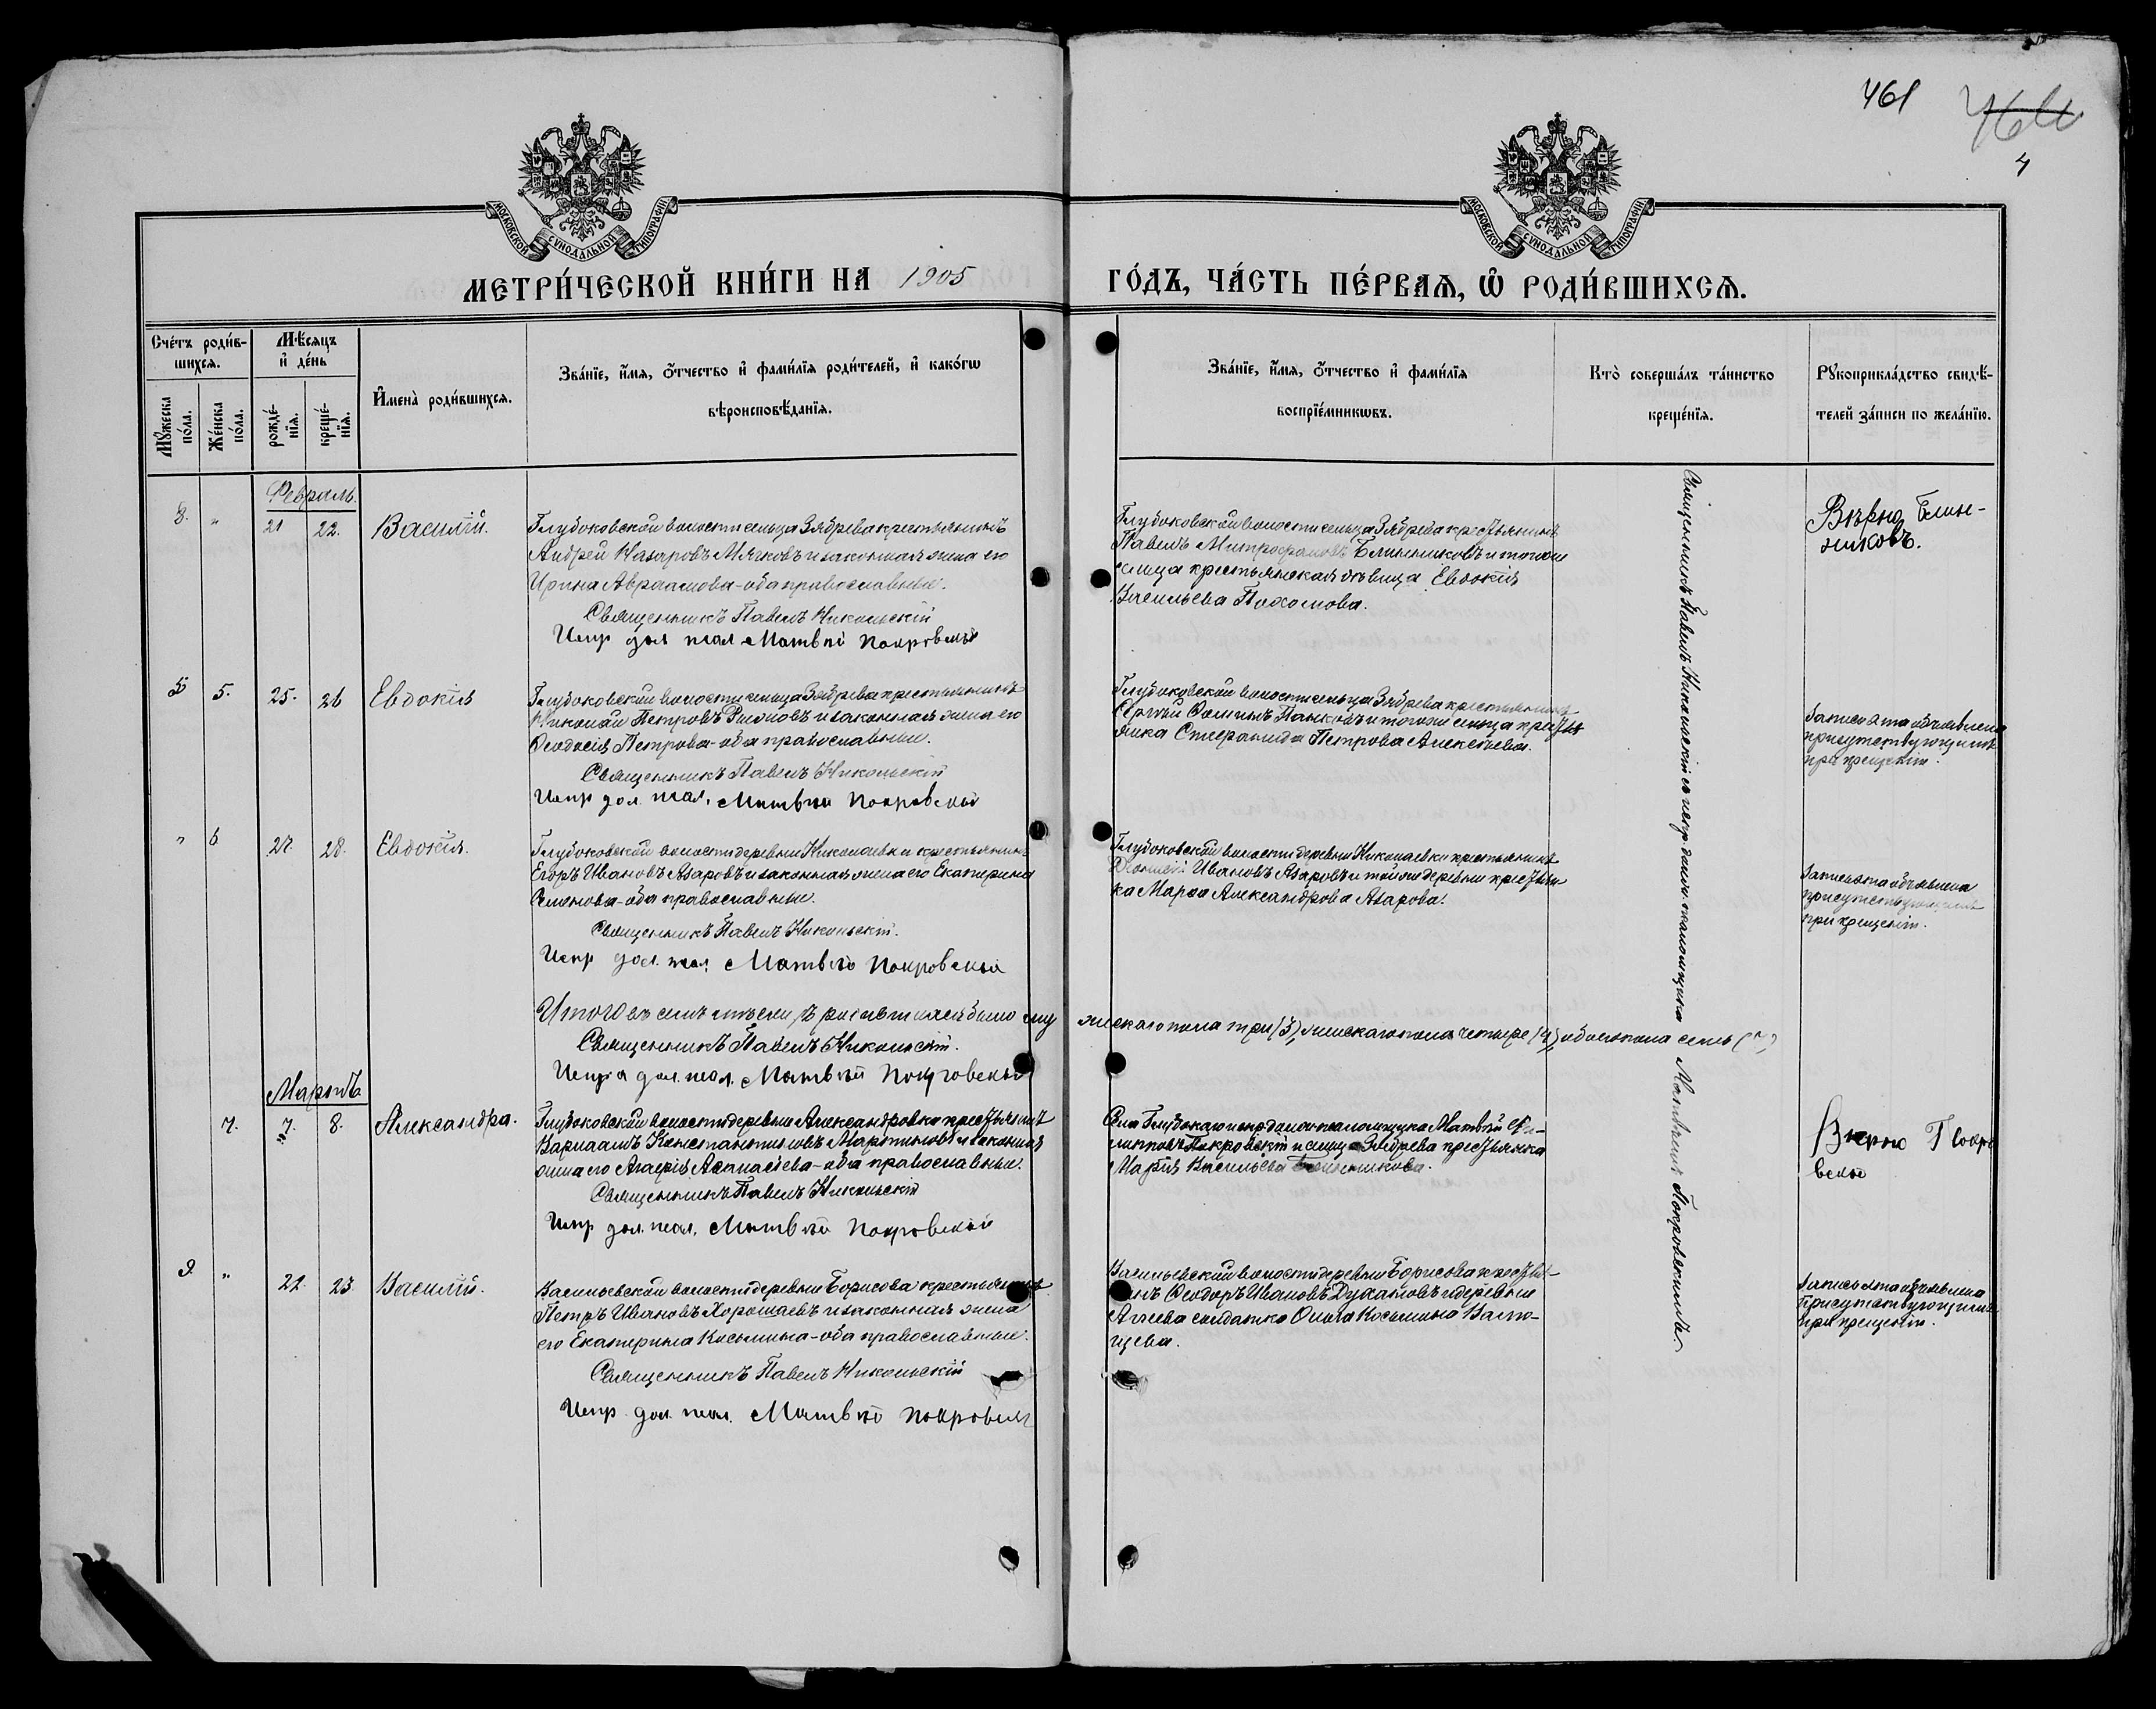 461
4
МОСКОВСКОЙ СѴНОДАЛЬНОЙ ТИПОГРАФІИ
МОСКОВСКОЙ СѴНОДАЛЬНОЙ ТИПОГРАФІИ
МЕТРИ́ЧЕСКОЙ КНИ́ГИ НА 1905 ГО́ДЪ, ЧА́СТЬ ПЕ́РВАѦ, Ѡ҆ РОДИ́ВШИХСѦ.
Сче́тъ роди́в-
шихсѧ.
Мꙋ́жеска по́ла.
Же́нска по́ла.
Мѣ́сѧцъ
и҆ де́нь
рожде́-
нїѧ.
креще́-
нїѧ.
И҆мена̀ роди́вшихсѧ.
Зва́нїе, и҆́мѧ, ѻ҆́тчество и҆ фами́лїѧ роди́телей, и҆ како́гѡ
вѣроисповѣ́данїѧ.
Зва́нїе, и҆́мѧ, ѻ҆́тчество и҆ фами́лїѧ
воспрїе́мникѡвъ.
Кто̀ соверша́лъ та́инство
креще́нїѧ.
Рꙋкоприкла́дство свидѣ́-
телей за́писи по жела́нїю.
Февраль.
8. " 21 22. Василій.
Глубоковской волости сельца Зябрева крестьянинъ
Андрей Назаровъ Мячковъ и законная жена его
Ирина Авраамова - оба православные.
Священникъ Павелъ Никольскій
Испр дол псал Матвѣй Покровскій
Глубоковской волости сельца Зябрева крестьянинъ
Павелъ Митрофановъ Блинниковъ и тогоже
сельца крестьянская дѣвица Евдокія
Васильева Пахомова.
Вѣрно Блин-
никовъ.
5. 25. 26 Евдокія
Глубоковской волости сельца Зябрева крестьянинъ
Николай Петровъ и законная жена его
Ѳеодосія Петрова - оба православные.
Священникъ Павелъ Никольскій
Испр дол. псал. Матвѣй Покровскій
Глубоковской волости сельца Зябрева крестьянинъ
Сергѣй и тогоже сельца кресть
янка Петрова Алексѣева.
Запись эта объявлена
присутствующимъ
при крещеніи.
" 6 27. 28. Евдокія.
Глубоковской волости деревни Николаевки крестьянинъ
Егоръ Ивановъ Азаровъ и законная жена его Екатерина
Семенова - оба православные.
Священникъ Павелъ Никольскій.
Испр дол. псал. Матвѣй Покровскій
Глубоковской волости деревни Николаевки крестьянинъ
Ивановъ Азаровъ и тойже деревни крестьян
ка Марѳа Александрова Азарова.
Запись эта объявлена
присутствующимъ
при крещеніи.
Итого въ семъ мѣсяцѣ родившихся было му жескаго пола три (3), женскаго пола четыре (4), обоего пола семь (7)
Священникъ Павелъ Никольскій.
Испр дол. псал. Матвѣй Покровскій
Мартъ
7. 7. 8. Александра.
Глубоковской волости деревни Александровки крестьянинъ
Варлаамъ Константиновъ Мартыновъ и законная
жена его Агаѳія Аѳанасіева - оба православные.
Священникъ Павелъ Никольскій
Испр дол. псал. Матвѣй Покровскій
Села Глубокаго испр должн псаломщика Матвѣй Фи-
липповъ Покровскій и сельца Зябрева крестьянка
Марія Васильева
Вѣрно Покро
вскій
9. " 22. 23. Василій.
Васильевской волости деревни Борисова крестьянинъ
Петръ Ивановъ Хорошаевъ и законная жена
его Екатерина Косьмина - оба православные.
Священникъ Павелъ Никольскій
Испр. дол. псал. Матвѣй Покровскій
Васильевской волости деревни Борисова крестья-
нинъ Ѳеодоръ Ивановъ и деревни
Агѣева солдатка Ольга Косьмина
Запись эта объявлена
присутствующимъ
при крещеніи.
Священникъ Павелъ Никольскій съ испр. должн. псаломщика Матвѣемъ Покровскимъ.